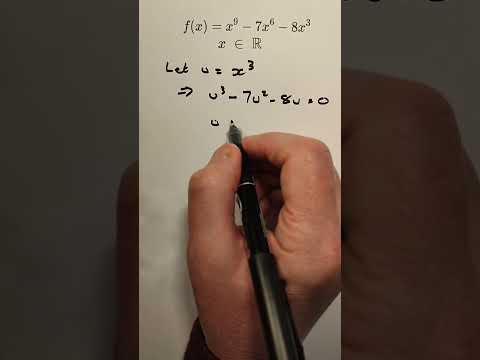 f(x) = x⁹ − 7x⁶ − 8x³
x ∈ ℝ
Let u = x³
⇒ u³ − 7u² − 8u = 0
u